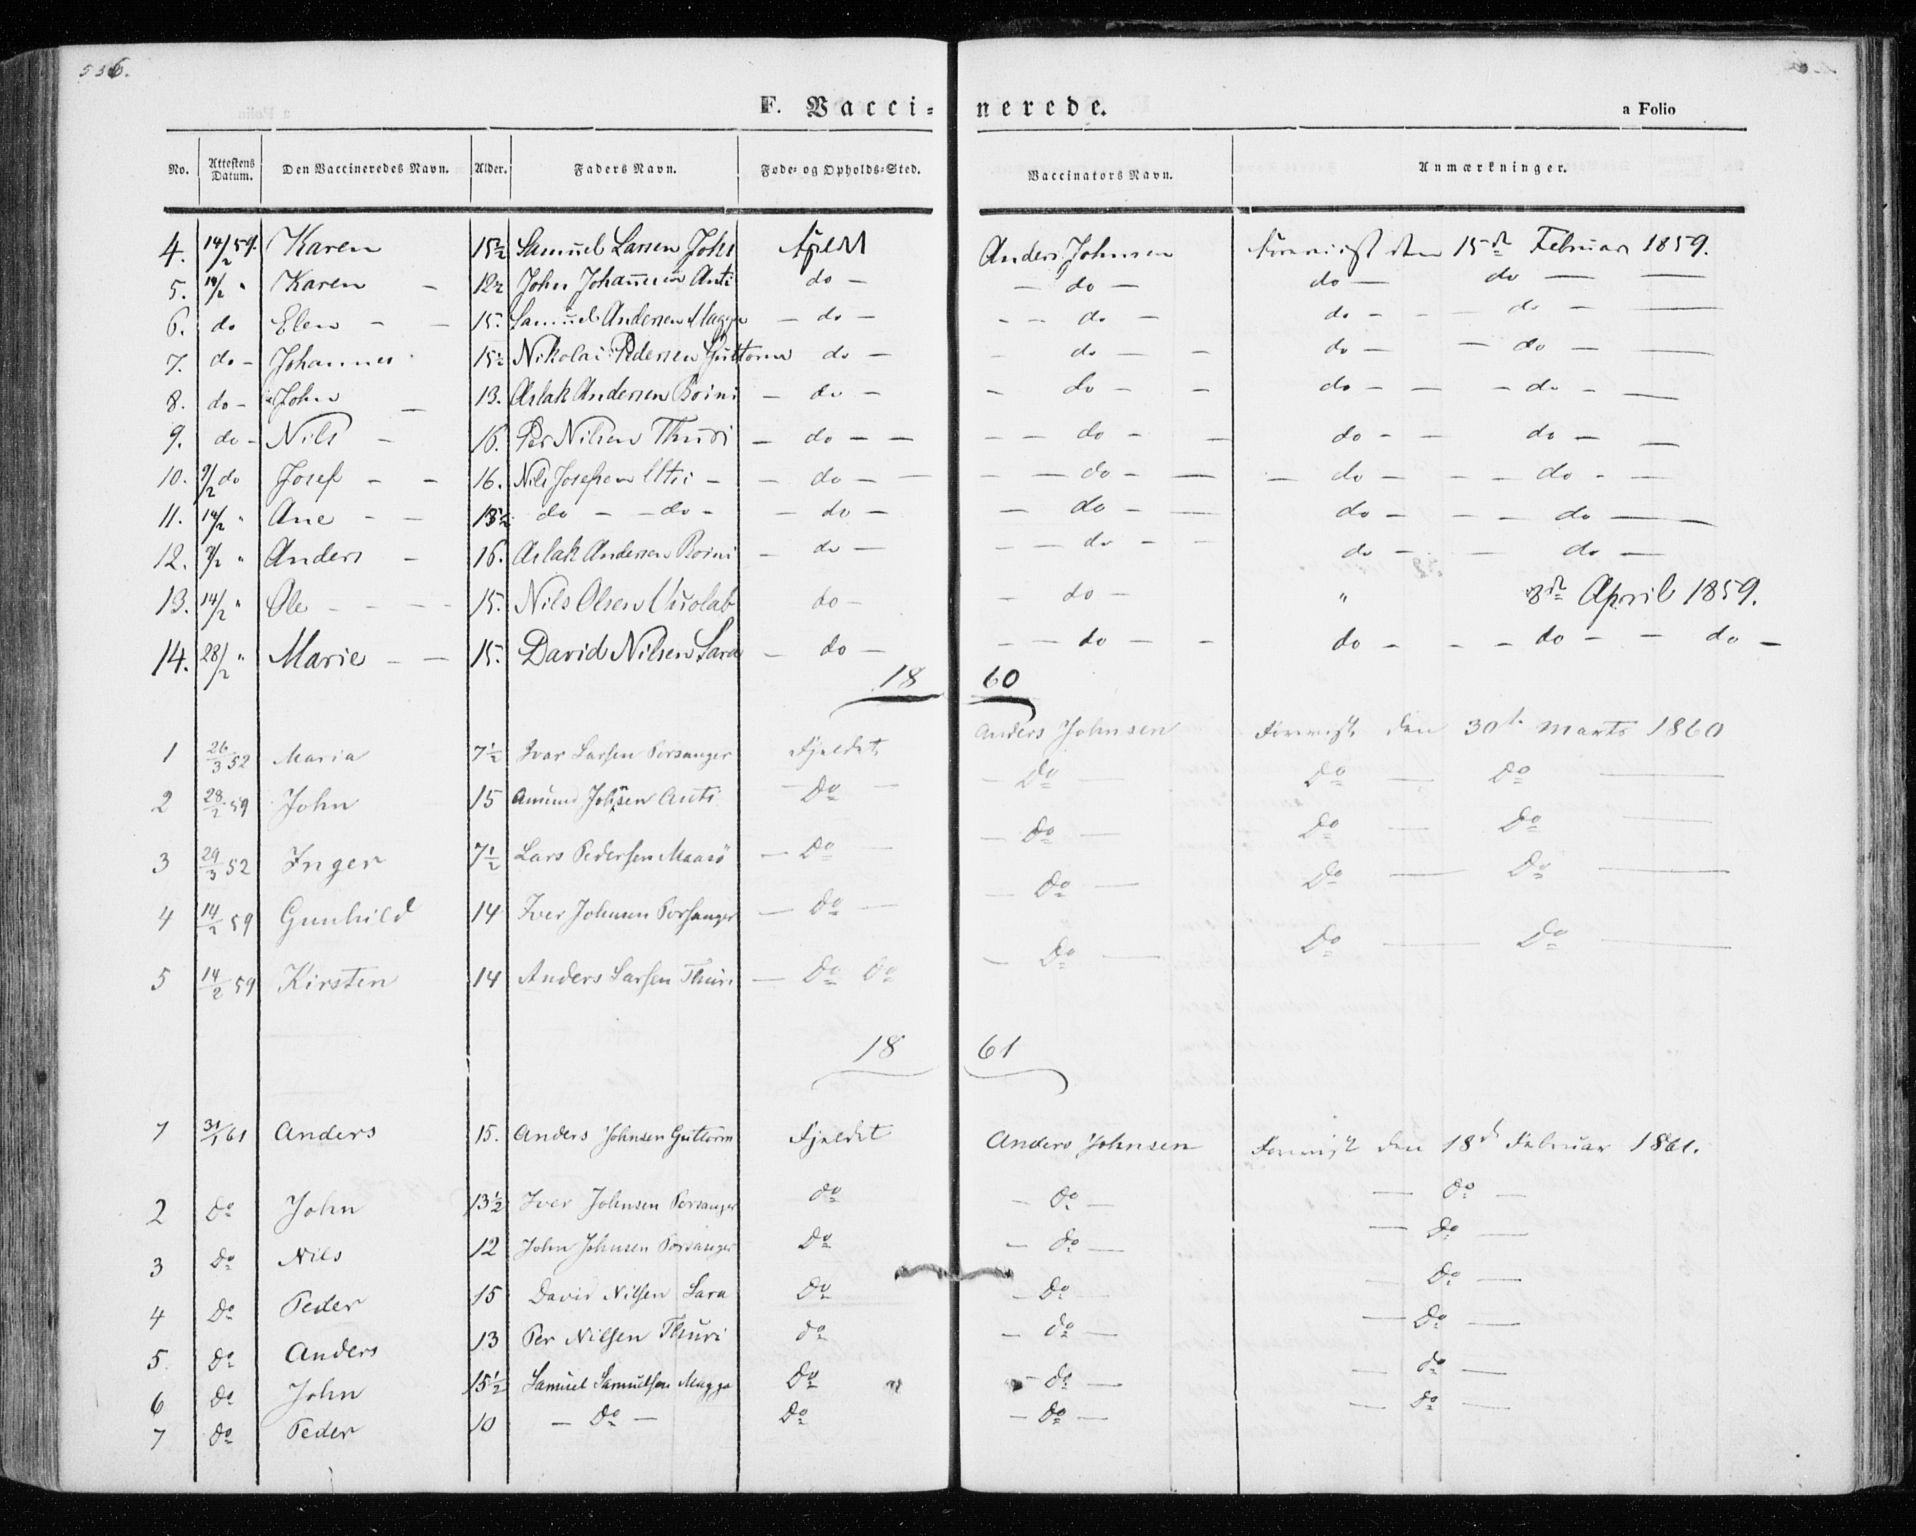 536.
F. Vaccinerede.
a Folio
No. Attestens Datum. Den Vaccineredes Navn. Alder. Faders Navn. Føde- og Opholds-Sted. Vaccinators Navn. Anmærkninger.
4. 14/2 59. Karen 15½ Samuel Larsen Johs Fjeld Anders Johnsen Forevist den 15de Februar 1859.
5. 14/2 " Karen - 12½ John Johannesen Anti do - - do - do - do -
6. do Elen - - 15. Samuel Andersen Magga - do - - - do - do - - - do -
7. do - Johannes 15½ Nikolai Pedersen Guttorm do - - do - - do - - do -
8. do - John - 13. Aslak Andersen Boini - do - - do - - do - - - do -
9. do - Nils - 16. Per Nilsen Thuri - do - - - - do - - do - - do -
10. 9/2 do Josef - - 16. Nils Josefsen Utsi - - do - - - - do - - - do - - - do - -
11. 14/2 " Ane - - 13½ do - - do - - do - - do - - do - - - do -
12. 9/2 " Anders - 16. Aslak Andersen Boini - do - - - do - - do - - do -
13. 14/2 " Ole - - - - 15. Nils Olsen Vuolab do - - do - " 8de April 1859.
14. 28/2 " Marie - - 15. David Nilsen Sara - do - - - do - - do - - - do - - do -
1860
1 26/3 52 Maria 7½ Ivar Larsen Porsanger Fjeldet Anders Johnsen Forevist den 30te Marts 1860
2 28/2 59 John 15 Amund Johnsen Anti - Do - - Do - Do - Do -
3 29/3 52 Inger 7½ Lars Pedersen Maasö - Do - - Do - Do - Do -
4 14/2 59 Gunhild 14 Iver Johnsen Porsanger - Do - - Do - Do - Do -
5 14/2 59 Kirsten 14 Anders Larsen Thuri - Do Do - Do - Do - Do -
1861
1 31/1 61 Anders 15. Anders Johnsen Guttorm Fjeldet Anders Johnsen Forevist den 18de Februar 1861.
2 Do John 13½ Iver Johnsen Porsanger Do - Do - - Do -
3 Do Nils 12 John Johnsen Porsanger Do - Do - - Do -
4 Do Peder 15 David Nilsen Sara Do - Do - - Do -
5 Do Anders 13 Per Nilsen Thuri Do - Do - - Do -
6 Do John 15½ Samuel Samuelsen Magga Do - Do - - Do -
7 Do Peder 10 - Do - Do - Do - - Do -